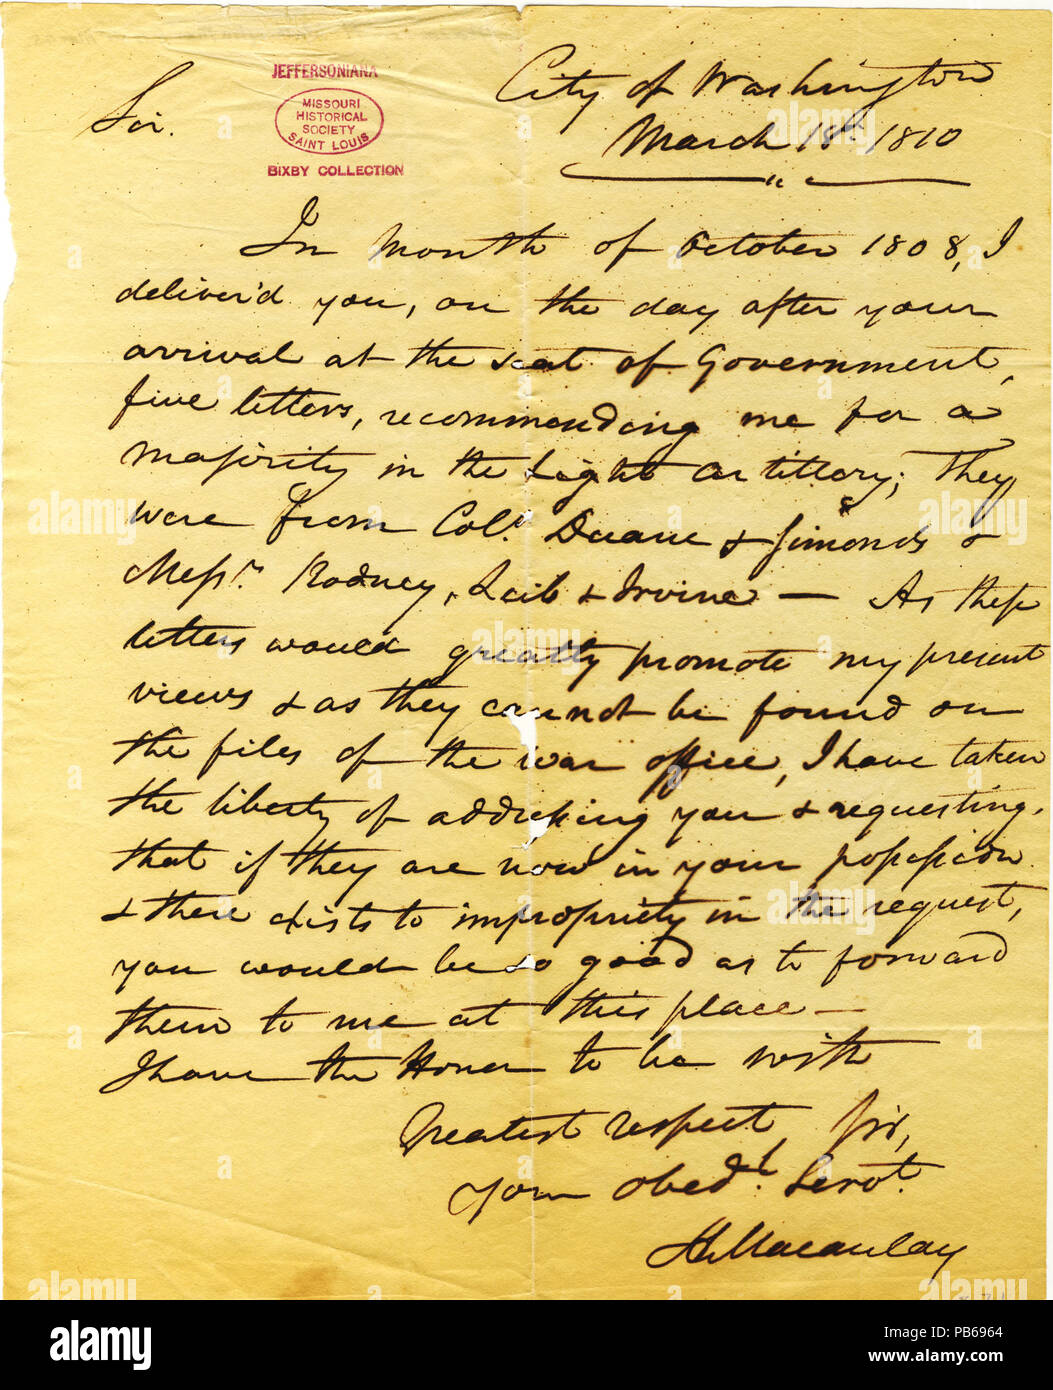 City of Washington
March 18th 1810
Sir.
JEFFERSONIANA
MISSOURI
HISTORICAL
SOCIETY
SAINT LOUIS
BIXBY COLLECTION
In Month of October 1808, I
deliver'd you, on the day after your
arrival at the seat of Government,
five letters, recommending me for a
majority in the Light Artillery; They
were from Cols. Duane & Simonds &
Messrs. Rodney, Leib & Irvine — As these
letters would greatly promote my present
views & as they cannot be found on
the files of the war office, I have taken
the liberty of addressing you & requesting,
that if they are now in your possession
& there exists to impropriety in the request,
you would be so good as to forward
them to me at this place —
I have the Honor to be with
Greatest respect, Sir,
Your obedt. Servt.
H. Macaulay
alamy
Image ID: PB6964
www.alamy.com